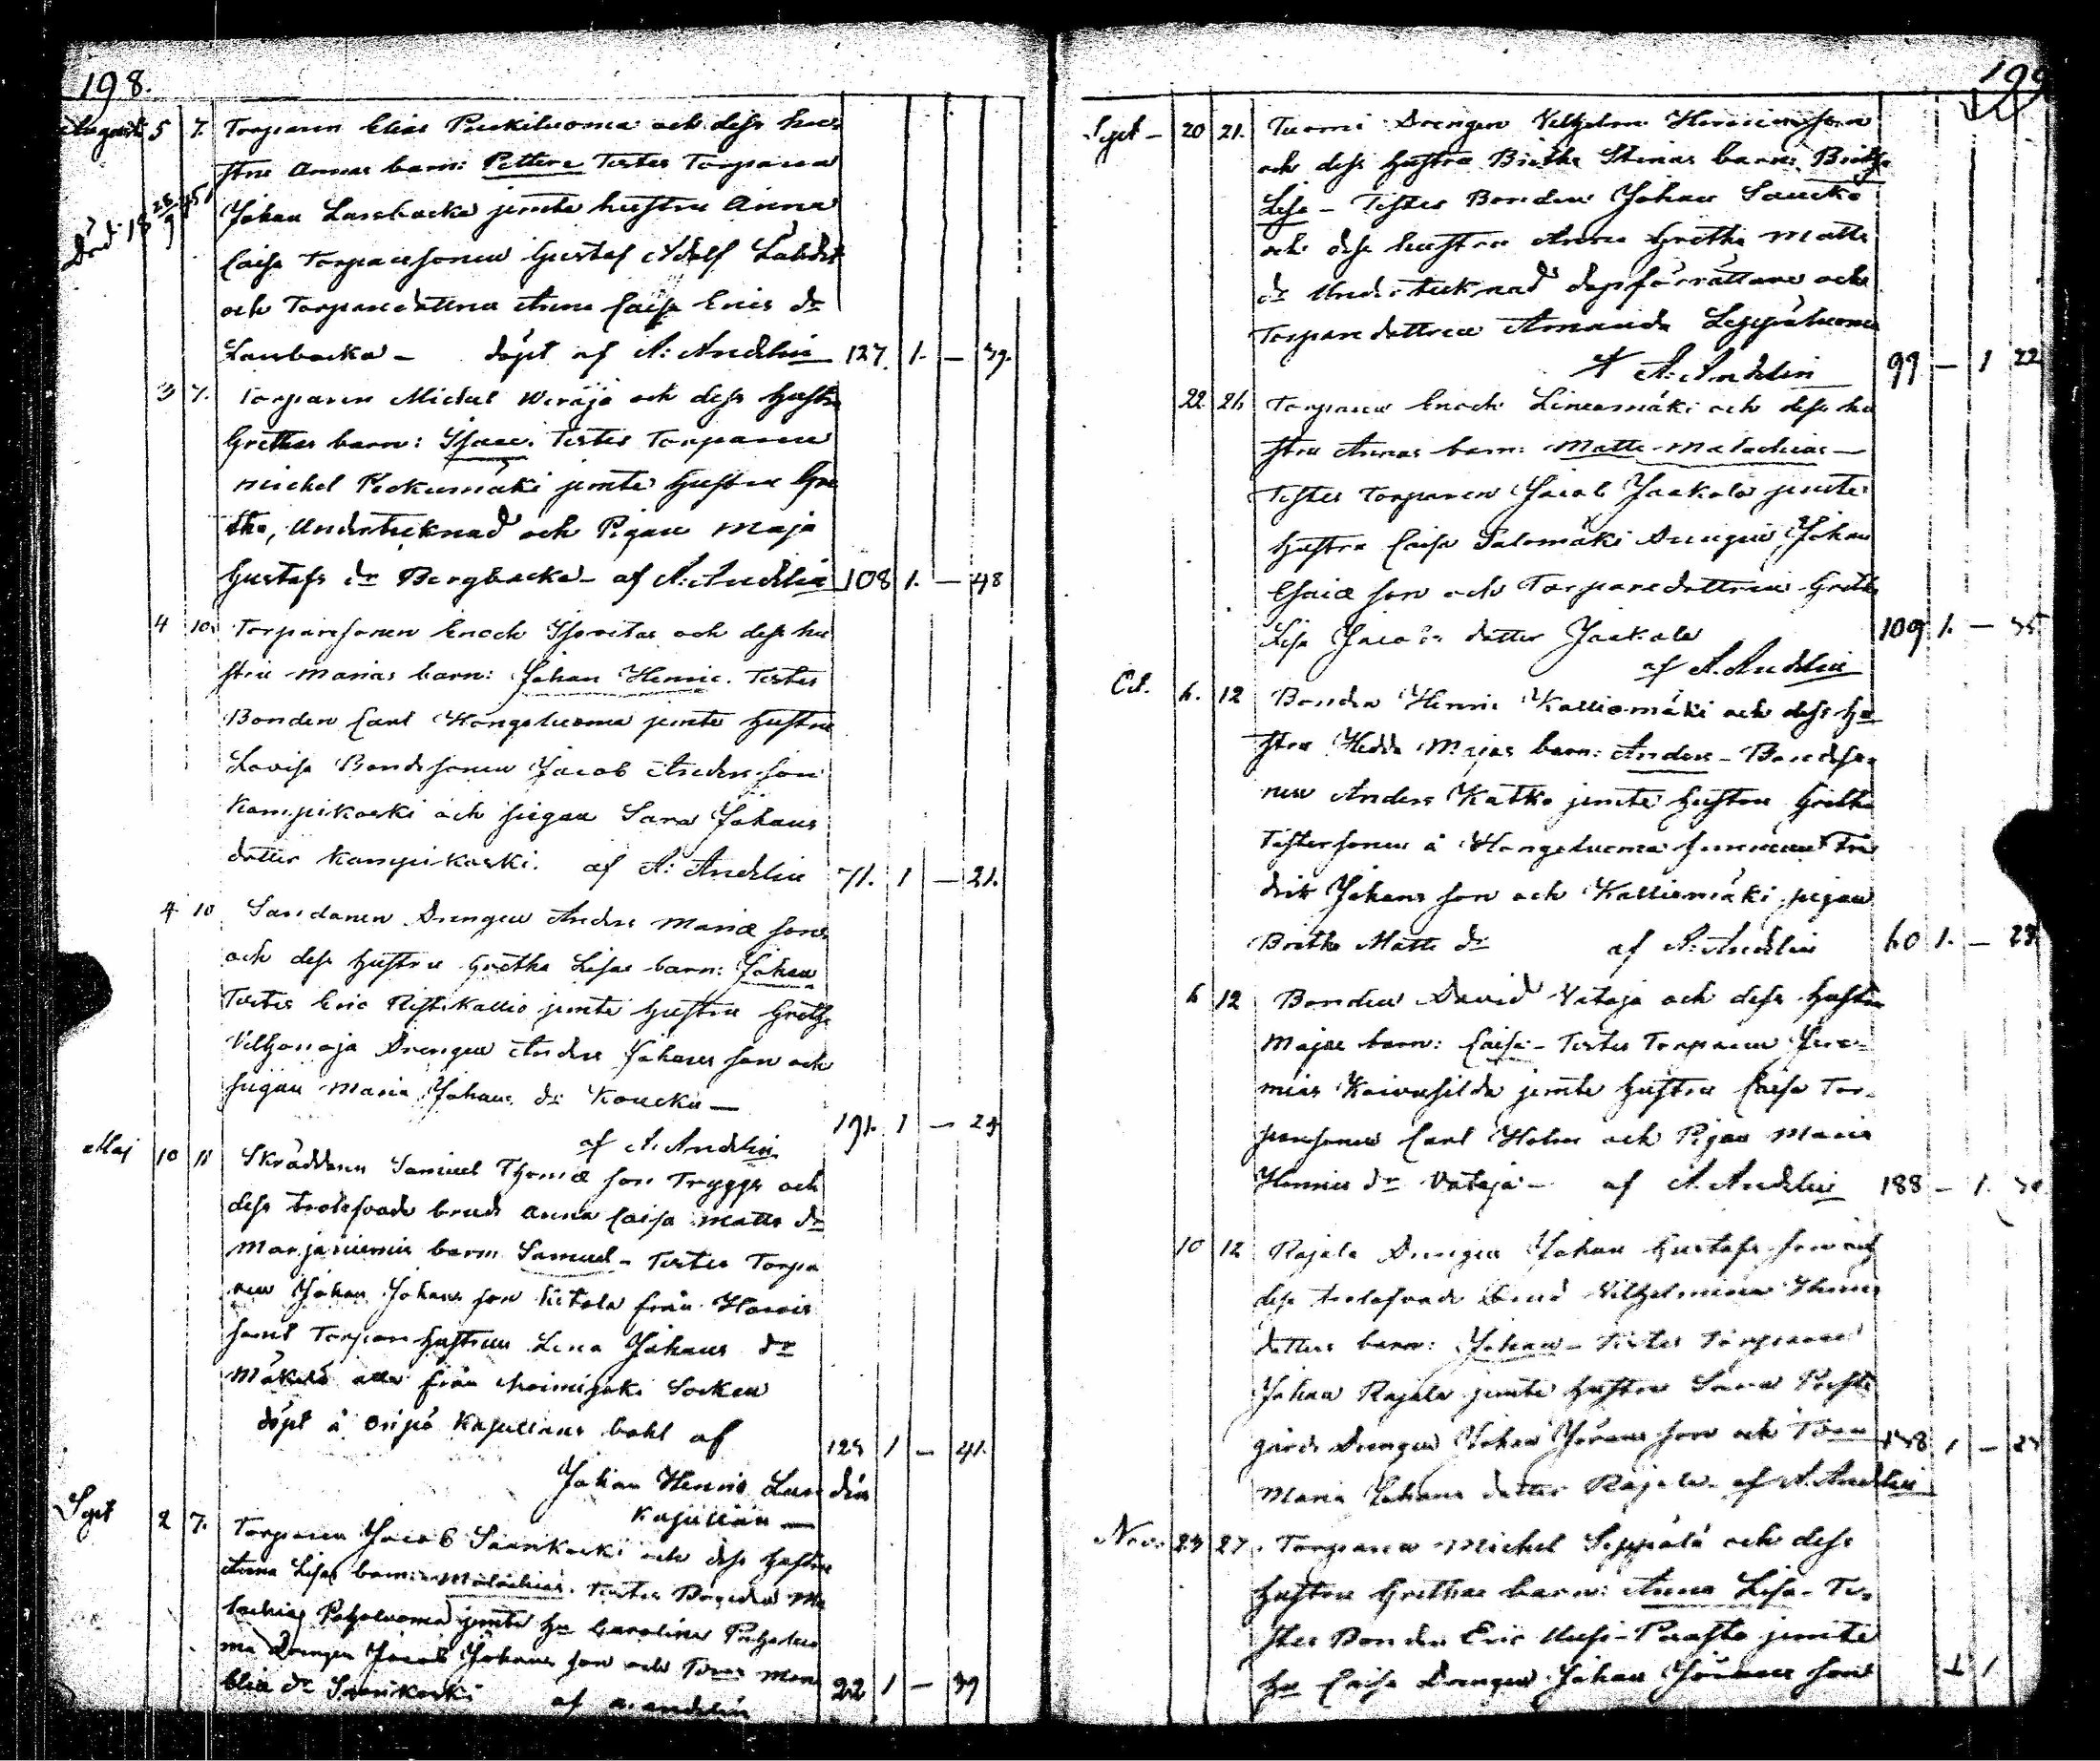 198.
August 5 7. Torparen Elias Puskiluoma och dess hu-
stru Annas barn: Petter Testes Torparen
Johan Lassbacka jemte hustru Anna
Caisa Torparesonen Gustaf Adolf
Död 18 26/9 45
och Torparedottren Anna Caisa Erics dr
Lassbacka – döpt af A: Andelin 127. 1. – 39.
3 7. Torparen Michel Weräjä och dess hustru
Grethas barn: Isaac. Testes Torparen
Michel Peckumäki jemte hustru Gre
tha, Undertecknad och Pigan Maja
Gustafs dr Bergbacka – af A: Andelin 108 1. – 48
4 10. Torparesonen Enoch och dess hu
stru Marias barn: Johan Henric. Testes
Bonden Carl Hangaluoma jemte hustru
Lovisa Bondesonen Jacob Anders son
Kampikoski och pigan Sara Johans
dotter Kampikoski. af A: Andelin 71. 1 – 21.
4 10 Sandanen Drengen Anders Mariæ son
och dess hustru Gretha Lisas barn: Johan
Testes Eric Ristikallio jemte hustru Gretha
Drengen Anders Johans son och
pigan Maria Johans dr Koucku –
af A. Andelin 191. 1 – 24
Maj 10 11 Skräddaren Samuel Thomæ son Trygg och
dess trolofvade brud Anna Caisa Matts dr
Marjaniemis barn Samuel – Testes Torpa
ren Johan Johans son från
samt Torpare hustrun Lena Johans dr
Mäkelä alla från Socken
döpt å Kapellans bohl af 125 1 – 41.
Johan Henric Lundin
Kapellan –
Sept 2 7. Torparen Jacob Saarikoski och dess hustru
Anna Lisas barn: Malachias. Testes Bonden Ma
lachias Pohjoluoma jemte hu Carolina Pohjoluo
ma Drengen Jacob Johans son och
dr Saarikoski af A. Andelin 22 1 – 39
199
Sept – 20 21. Tuomi Drengen Vilhelm Henricsson
och dess hustru Britha Stinas barn: Britha
Lisa – Testes Bonden Johan Saucko
och dess hustru Anna Gretha Matts
dr Undertecknad dopförrättare och
Torparedottren Amanda Leppäluoma
af A. Andelin 99 – 1 22
22. 26 Torparen Enoch Linusmäki och dess hu
stru Annas barn: Matts Malachias –
Testes Torparen Jacob Jaakola jemte
hustru Caisa Salomäki Drengen Johan
Esaiæ son och Torparedottren Gretha
Lisa Jacobs dotter Jaakola 109 1. – 35
af A. Andelin
Oct. 6. 12 Bonden Henric Kalliomäki och dess hu
stru Hedda Majas barn: Anders – Bondeso-
nen Anders Katko jemte hustru Gretha
Testersonen å Hangaluoma Fre
drik Johans son och Kalliomäki pigan
Britha Matts dr af A. Andelin 60 1. – 28
6 12 Bonden David Vataja och dess hustru
Majas barn: Caisa – Testes Torparen Jere-
mias Koivusilda jemte hustru Caisa Tor-
paresonen Carl Holm och Pigan Maria
Henrics dr Vataja – af A. Andelin 188 – 1.
10 12 Rajala Drengen Johan Gustafs son och
dess trolofvade brud Vilhelmina Henrics
dotters barn: Johan – Testes Torparen
Johan Rajala jemte hustru Sara
gårds Drengen Johan Jörans son och
Maria Johans dotter Rajala. af A. Andelin
Nov. 23 27. Torparen Michel Seppälä och dess
hustru Grethas barn: Anna Lisa – Te-
stes Bonden Eric Uusi-Paasto jemte
hu Caisa Drengen Johan Jörans son
1